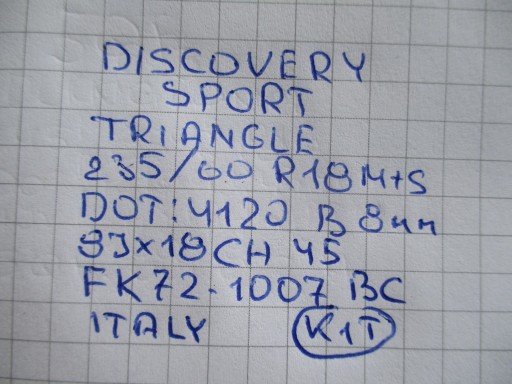 DISCOVERY
SPORT
TRIANGLE
235/60 R18 M+S
DOT: 4120 B 8mm
9Jx18 CH 45
FK72-1007 BC
ITALY KIT